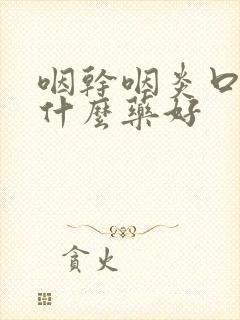 咽幹咽炎口
什麼藥好
貪火